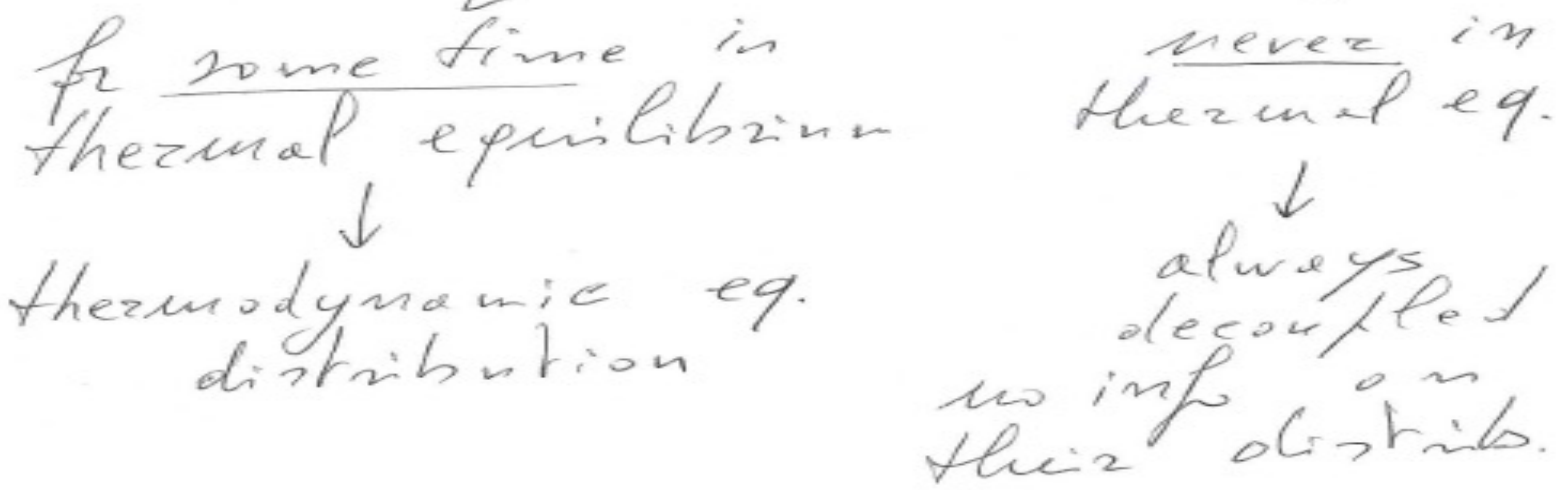 for some time in
thermal equilibrium
↓
thermodynamic eq.
distribution
never in
thermal eq.
↓
always
decoupled
no info on
their distrib.